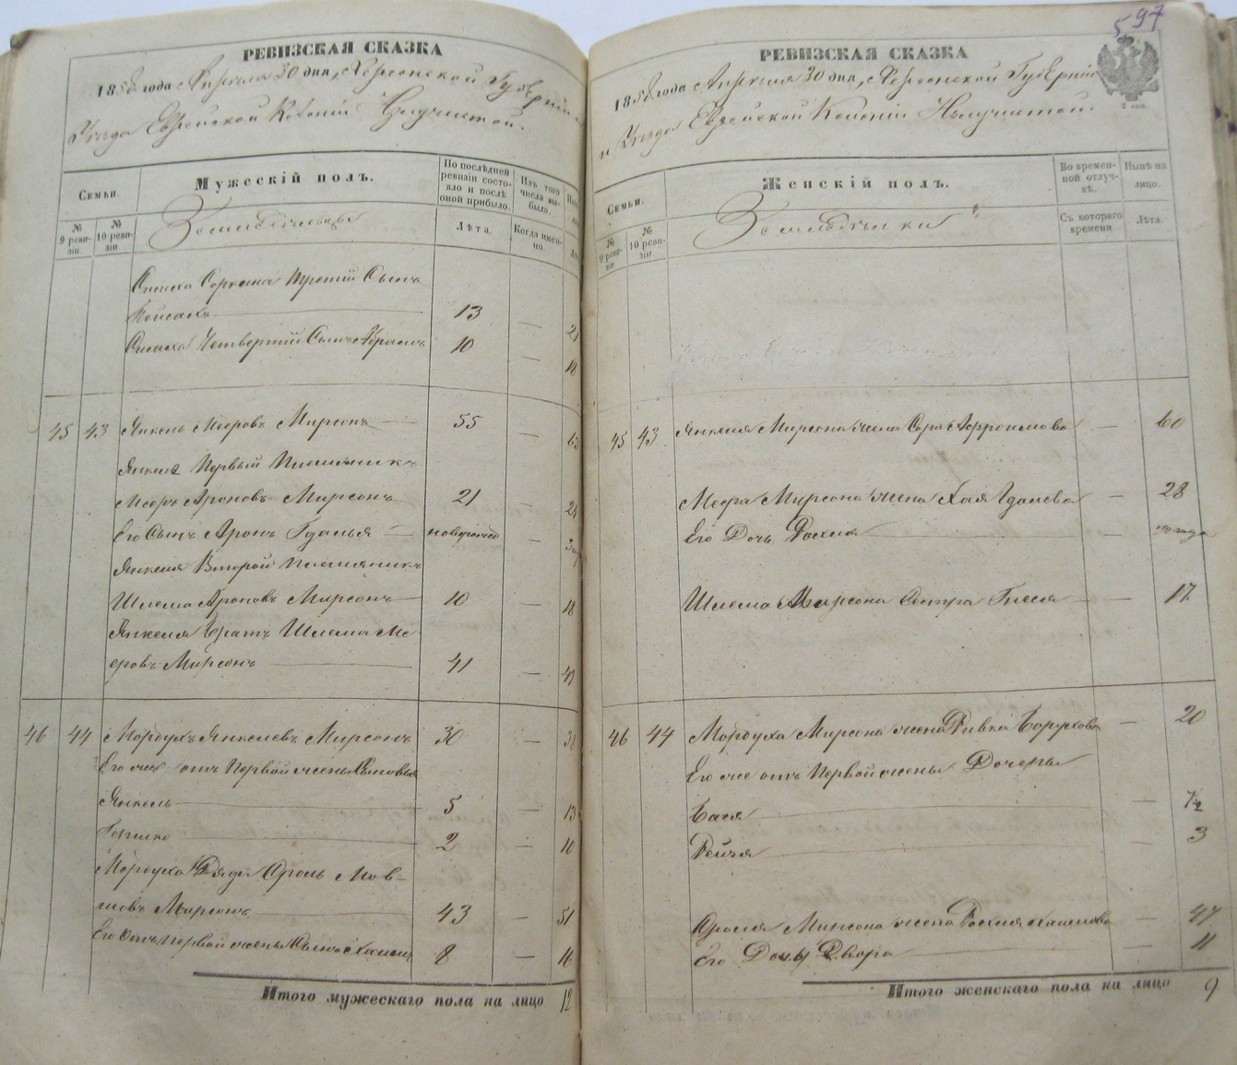 РЕВИЗСКАЯ СКАЗКА
1858 года Апреля 30 дня, Херсонской Губерніи
Уезда Еврейской Колоніи
Семьи.
Мужескій полъ.
По последней ревизіи состояло и послѣ оной прибыло.
Изъ того числа выбыло.
№ 9 ревизіи
№ 10 ревизіи
Лѣта.
Когда именно.
третій Сынъ
13
Четвертый Сынъ Абрамъ
10
18
45 43 Янкель Мееровъ Мирсонъ 55
Янкеля Первый Племяникъ
Мееръ Ароновъ Мирсонъ 21
Его Сынъ Аронъ Гдалья новорожд
Янкеля Второй племяникъ
Шлема Ароновъ Мирсонъ 10 18
Янкеля братъ Шлема Ме-
еровъ Мирсонъ 41 49
46 44 Мордухъ Янкелевъ Мирсонъ 30 38
Его же отъ Первой жены Сыновья
Янкель 5 13
Гершко 2 10
Мордуха Дядя Сроль Мов-
шовъ Мирсонъ 43 51
Его отъ первой жены Сынъ Хаимъ 8 16
Итого мужескаго пола на лицо 12
597
РЕВИЗСКАЯ СКАЗКА
1858 года Апреля 30 дня, Херсонской Губерніи
и Уезда Еврейской Колоніи
Семьи.
Женскій полъ.
Во временной отлучкѣ.
Нынѣ на лицо.
№ 9 ревизіи
№ 10 ревизіи
Съ котораго времени
Лѣта.
45 43 Янкеля Мирсона жена Сора Афроимова 60
Меера Мирсона жена Хая 28
Его Дочь Рохля
Шлема Мирсона Сестра Гнеся 17
46 44 Мордуха Мирсона жена Ривка Борухова 20
Его же отъ Первой жены Дочери
Бася 7½
Рейзя 3
Сроля Мирсона жена Рохля Хаимова 47
Его Дочь Двора 11
Итого женскаго пола на лицо 9